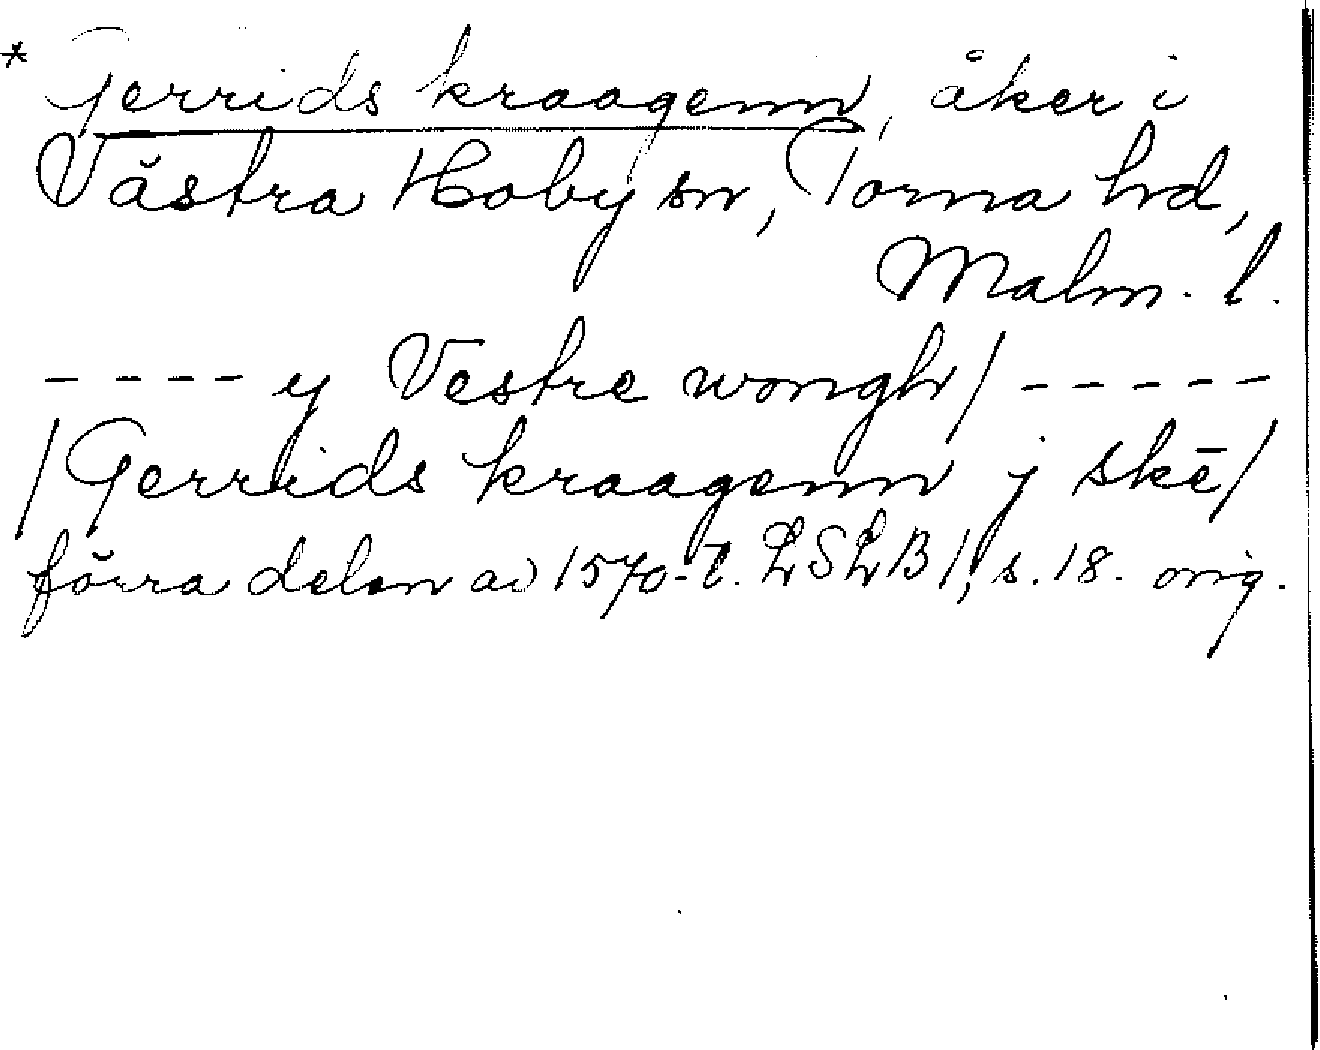 * Gerrids kraagenn, åker i
Västra Hoby sn, Torna hd,
Malm. l.
- - - - y Vestre wongh/ - - - - -
/Gerrids kraagenn j skē/
förra delen av 1570-t. LSLB 1, s. 18. orig.